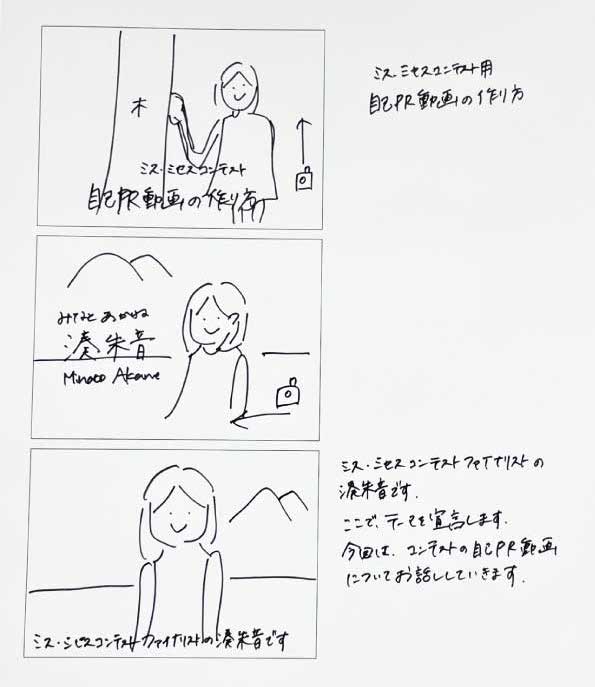 木
ミス・ミセスコンテスト
自己PR動画の作り方
ミス・ミセスコンテスト用
自己PR動画の作り方
みなと あかね
湊朱音
Minato Akane
ミス・ミセスコンテストファイナリストの湊朱音です
ミス・ミセスコンテストファイナリストの
湊朱音です。
ここで、テーマを宣言します。
今回は、コンテストの自己PR動画
についてお話ししていきます。